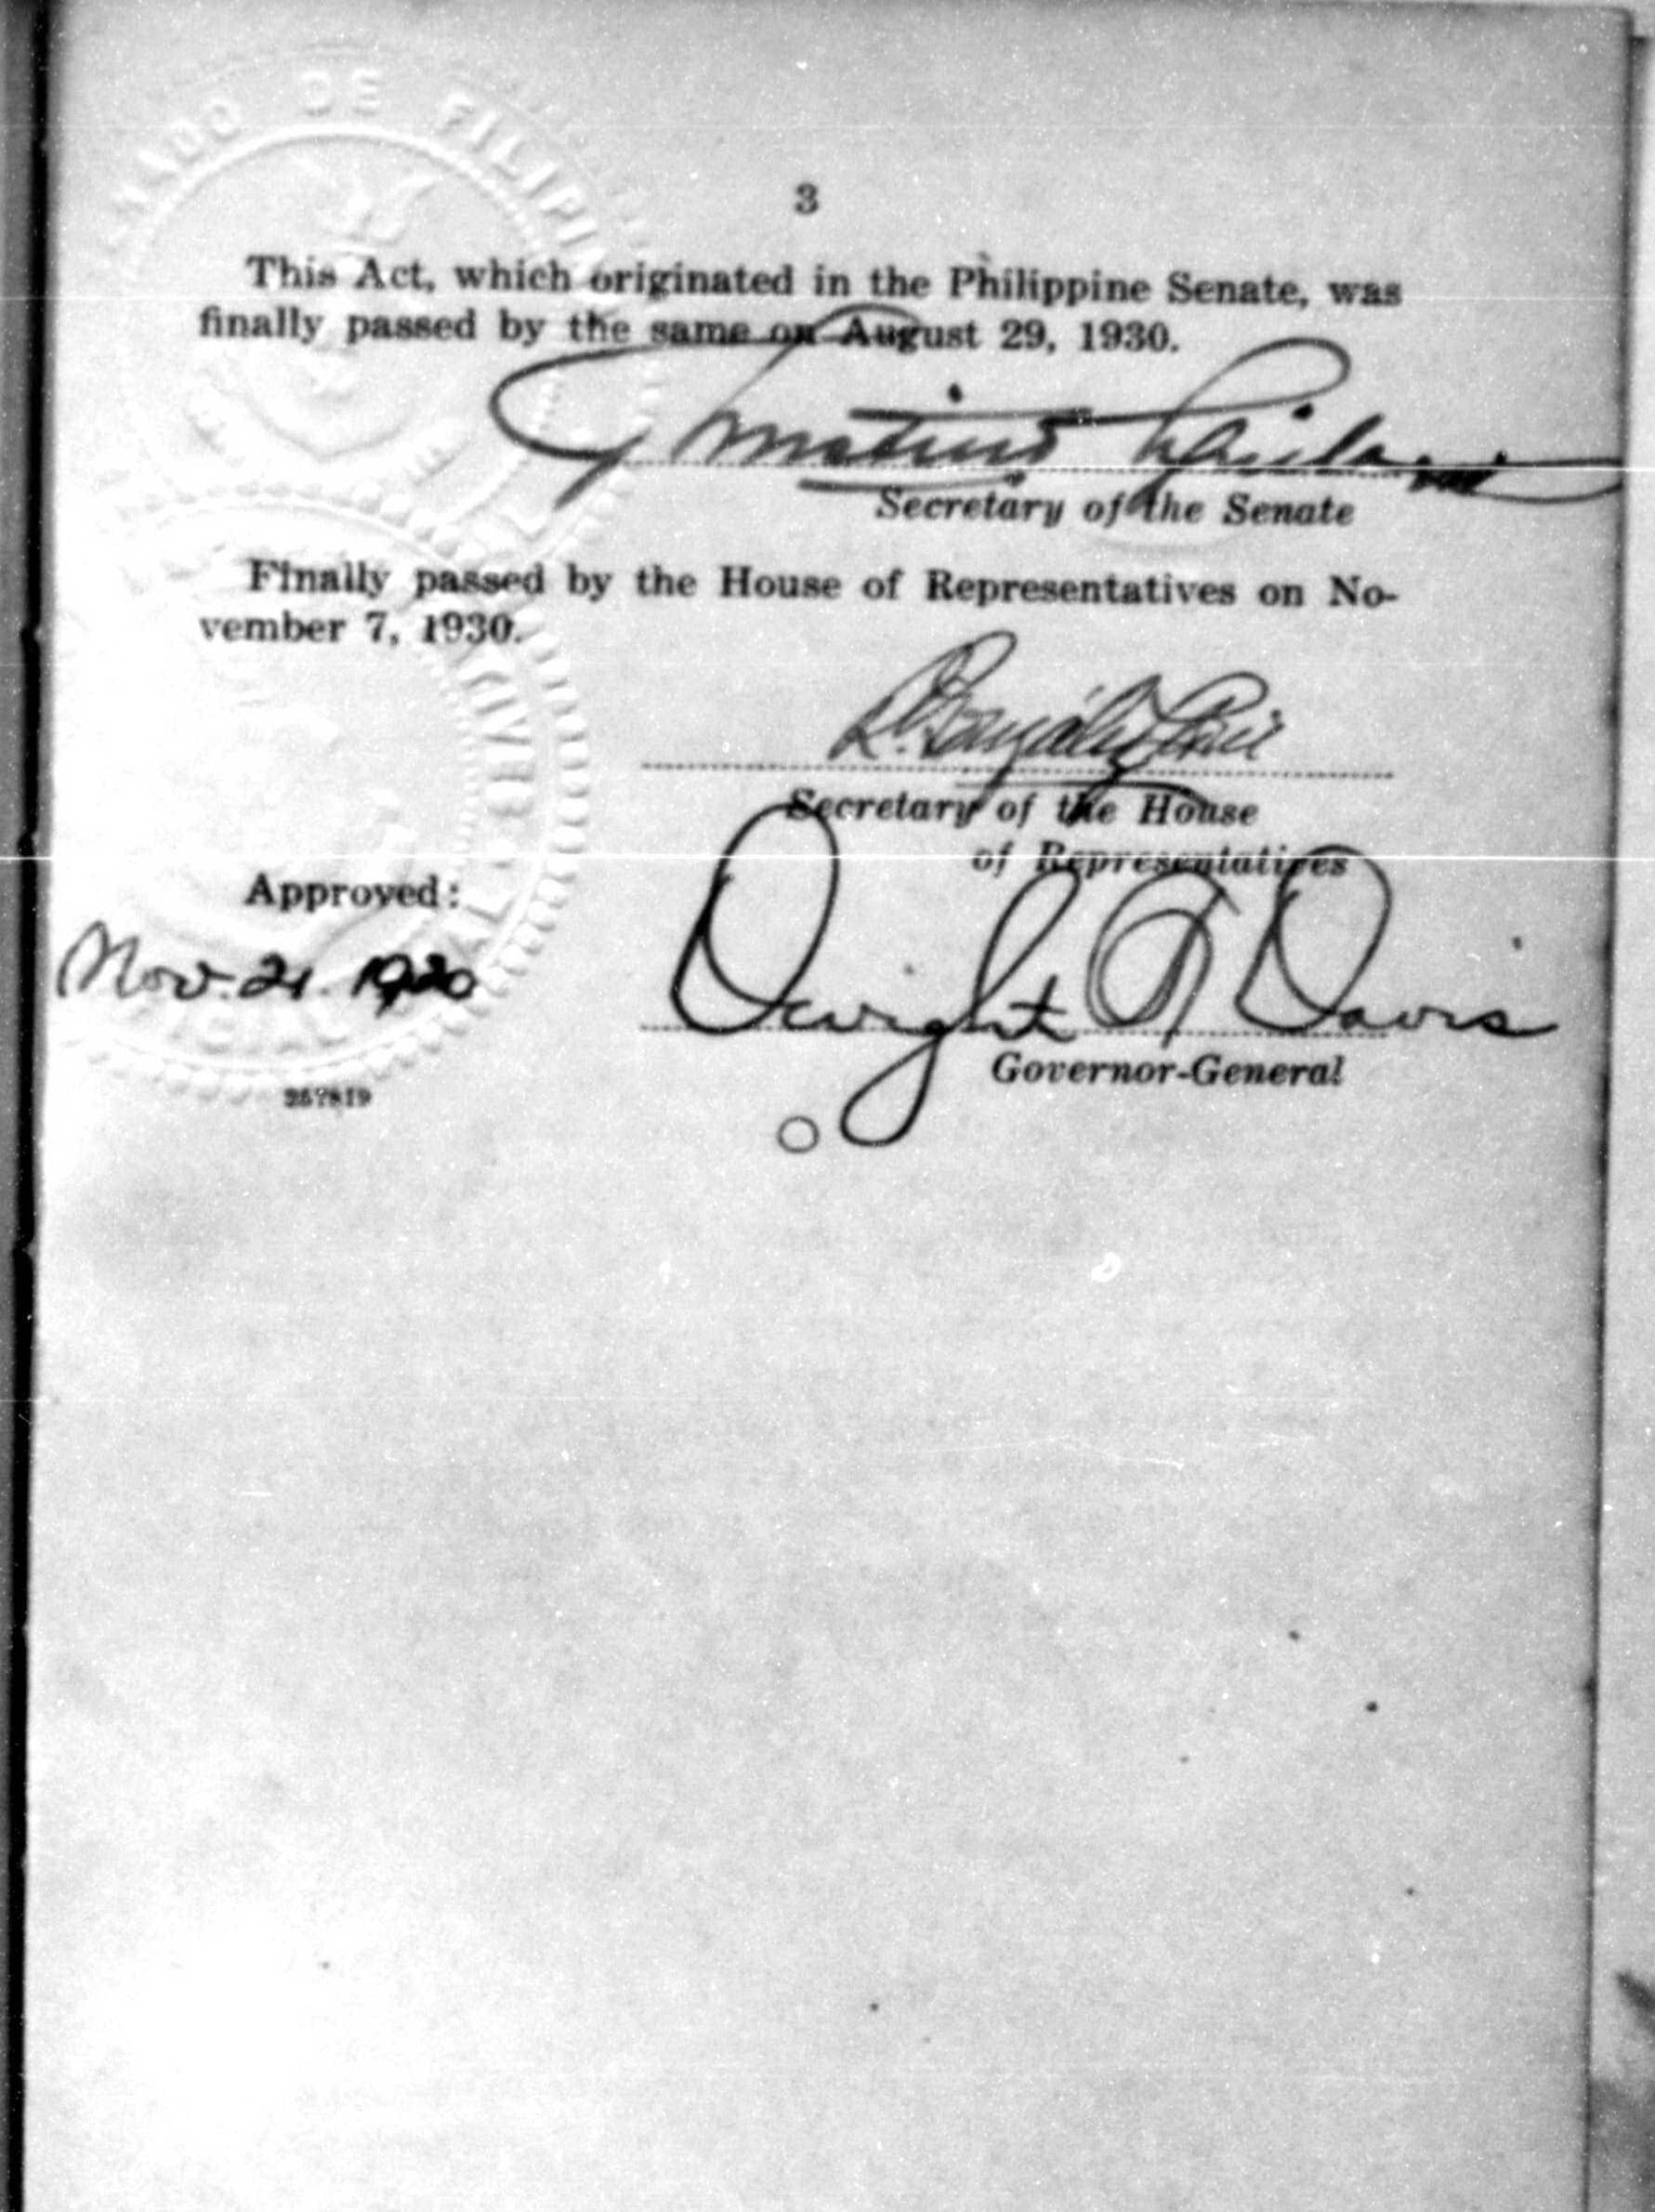 DE FILIPI
3
This Act, which originated in the Philippine Senate, was
finally passed by the same on August 29, 1930.
Secretary of the Senate
Finally passed by the House of Representatives on No-
vember 7, 1930.
Secretary of the House
of Representatives
Approved:
Nov. 21. 1930
Dwight F Davis
Governor-General